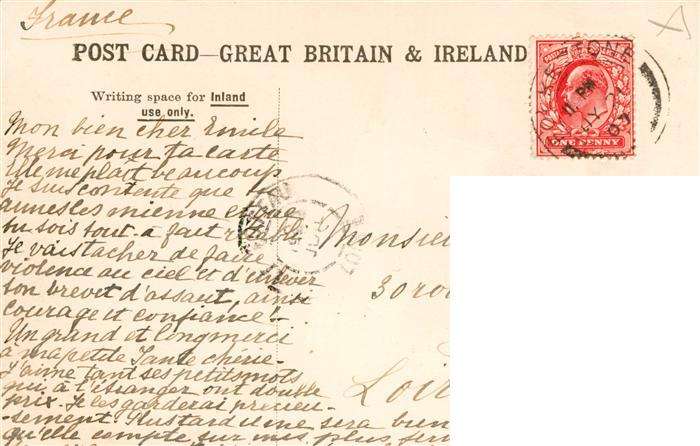 France
POST CARD—GREAT BRITAIN & IRELAND
Writing space for Inland
use only.
ONE PENNY
Mon bien cher Emile
Merci pour ta carte
Elle me plait beaucoup
Je suis contente que tu
aimes les mienne et que
tu sois tout-à fait rétabli
Je vais tacher de faire
violence au ciel et d'enlever
ton brevet d'assaut, ainsi
courage et confiance!-
Un grand et long merci
à ma petite Tante chérie-
J'aime tant ses petits mots
qui à l'étranger ont double
prix. Je les garderai précieu-
-sement. Plus tard il me sera bien
qu'elle compte sur mes plus
Monsieu
30 rou
Loir